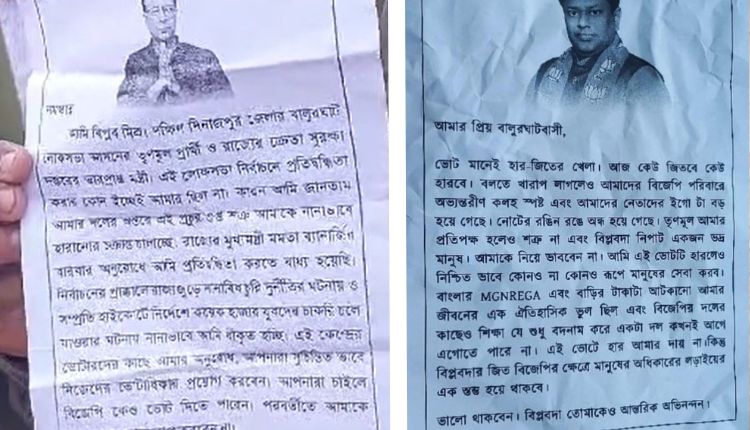 নমস্কার
আমি বিপ্লব মিত্র। দক্ষিণ দিনাজপুর জেলার বালুরঘাট
লোকসভা আসনের তৃণমূল প্রার্থী ও রাজ্যের ক্রেতা সুরক্ষা
দপ্তরের ভারপ্রাপ্ত মন্ত্রী। এই লোকসভা নির্বাচনে প্রতিদ্বন্দ্বিতা
করার কোন ইচ্ছেই আমার ছিল না। কারন আমি জানতাম
আমার দলের অন্তরে এই প্রচুর গুপ্ত শত্রু আমাকে নানাভাবে
হারানোর চক্রান্ত চালাচ্ছে। রাজ্যের মুখ্যমন্ত্রী মমতা ব্যানার্জির
বারবার অনুরোধে আমি প্রতিদ্বন্দ্বিতা করতে বাধ্য হয়েছি।
নির্বাচনের প্রাক্কালে রাজ্যজুড়ে নানাবিধ দুর্নীতির ঘটনায় ও
সম্প্রতি হাইকোর্টে নির্দেশে কয়েক হাজার যুবদের চাকরি চলে
যাওয়ার ঘটনায় নানাভাবে আমি ধীকৃত হচ্ছি। এই কেন্দ্রের
ভোটারদের কাছে আমার অনুরোধ, আপনারা সুচিন্তিত ভাবে
নিজেদের ভোটাধিকার প্রয়োগ করবেন। আপনারা চাইলে
বিজেপি কেও ভোট দিতে পারেন। পরবর্তীতে আমাকে
আমার প্রিয় বালুরঘাটবাসী,
ভোট মানেই হার-জিতের খেলা। আজ কেউ জিতবে কেউ
হারবে। বলতে খারাপ লাগলেও আমাদের বিজেপি পরিবারে
অভ্যন্তরীণ কলহ স্পষ্ট এবং আমাদের নেতাদের ইগো টা বড়
হয়ে গেছে। নোটের রঙিন রঙে অন্ধ হয়ে গেছে। তৃণমূল আমার
প্রতিপক্ষ হলেও শত্রু না এবং বিপ্লবদা নিপাট একজন ভদ্র
মানুষ। আমাকে নিয়ে ভাববেন না। আমি এই ভোটটি হারলেও
নিশ্চিত ভাবে কোনও না কোনও রূপে মানুষের সেবা করব।
বাংলার MGNREGA এবং বাড়ির টাকাটা আটকানো আমার
জীবনের এক ঐতিহাসিক ভুল ছিল এবং বিজেপির দলের
কাছেও শিক্ষা যে শুধু বদনাম করে একটা দল কখনই আগে
এগোতে পারে না। এই ভোটে হার আমার দায় না।কিন্তু
বিপ্লবদার জিত বিজেপির ক্ষেত্রে মানুষের অধিকারের লড়াইয়ের
এক স্তম্ভ হয়ে থাকবে।
ভালো থাকবেন। বিপ্লবদা তোমাকেও আন্তরিক অভিনন্দন।